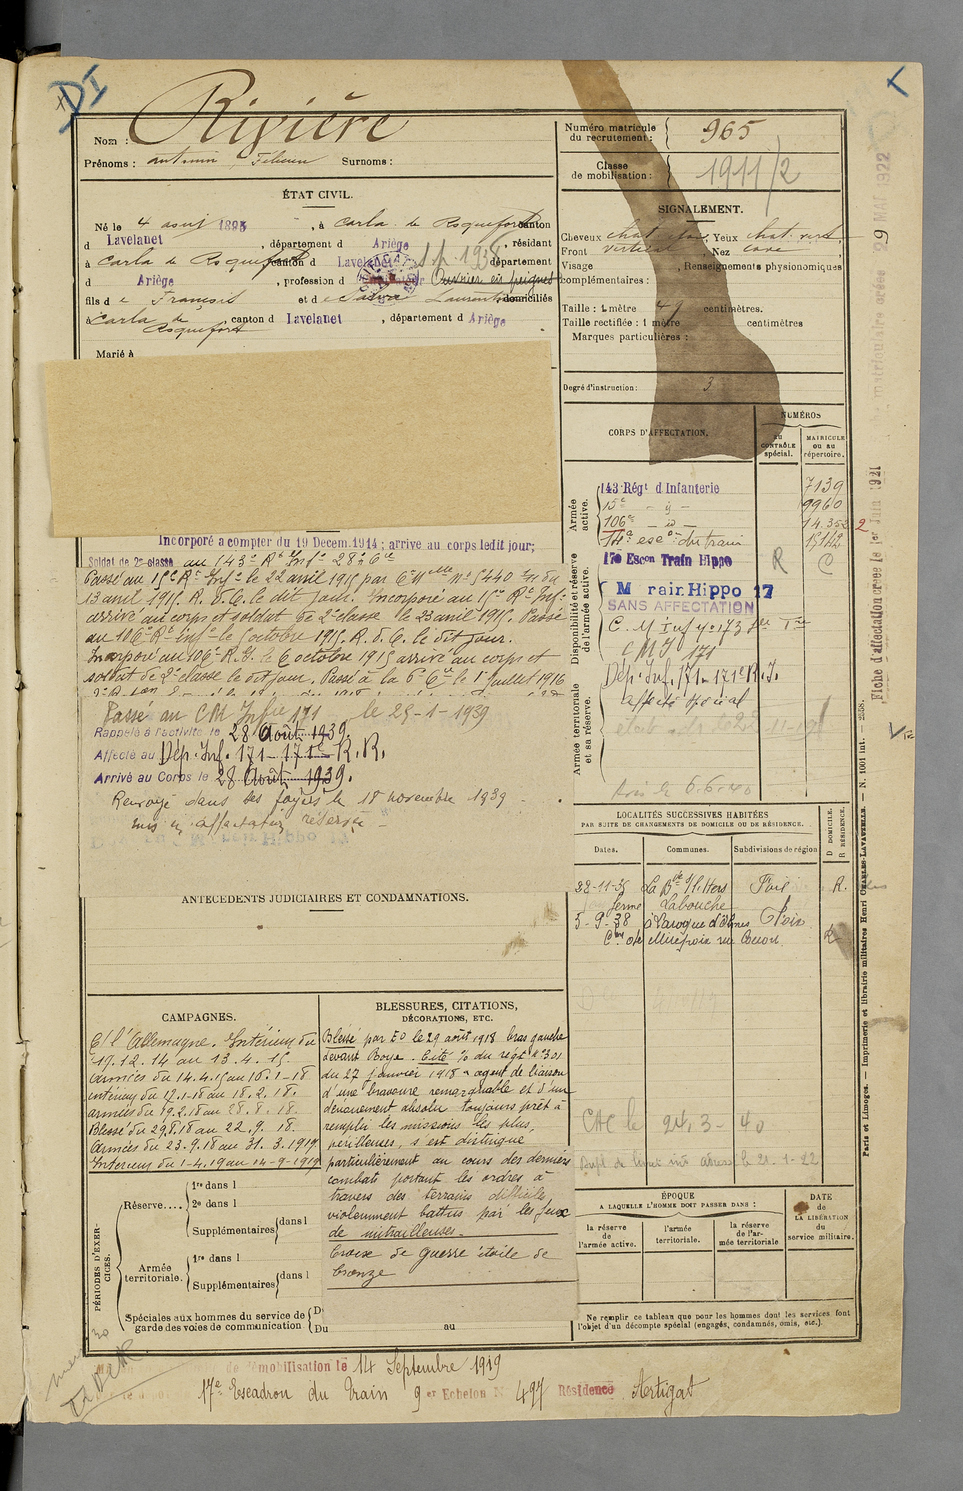 DI
Rivière
Nom :
Prénoms : Antonin, Félicien Surnoms :
Numéro matricule du recrutement : 965
Classe de mobilisation : 1911/2
ÉTAT CIVIL.
Né le 4 , à Carla de Roquefort canton
d Lavelanet, département d Ariège, résidant
à Carla de Roquefort, canton d Lavelanet département
d Ariège, profession d Ouvrier en peignes
fils de François et de Laurent domiciliés
à Carla de Roquefort, canton d Lavelanet, département d Ariège
Marié à
SIGNALEMENT.
Cheveux chat. ; Yeux chat. vert
Front vertical, Nez cave
Visage , Renseignements physionomiques
complémentaires :
Taille : 1 mètre 49 centimètres.
Taille rectifiée : 1 mètre centimètres
Marques particulières :
Degré d'instruction : 3
CORPS D'AFFECTATION.
NUMÉROS
au contrôle spécial.
MATRICULE ou au répertoire.
Armée active.
143 Régt d'Infanterie 7139
15e — id — 9960
106e — id — 14.352
esc. du train 15142
17e Escon Train Hippo R C
Disponibilité et réserve de l'armée active.
M rain Hippo 17
SANS AFFECTATION
C. M Inf no 173
C M I 171
Dép. Inf. 171 - 171e R. I.
affecté spécial
Armée territoriale et sa réserve.
6-6-40
Incorporé à compter du 19 Décem. 1914 ; arrivé au corps ledit jour;
Soldat de 2e classe au 143e Rt Infie 28e Cie
Passé au 15e Rt Infie le 22 avril 1915 par Cn Mlle No 5440 du
13 avril 1915. A. D. C. le dit jour. Incorporé au 15e Rt Infie
arrivé au corps et soldat de 2e classe le 23 avril 1915. Passé
au 106e Rt Infie le 6 octobre 1915. R. D. C. le dit jour.
Incorporé au 106e R.I. le 6 octobre 1915 arrivé au corps et
soldat de 2e classe le dit jour. Passé à la 6e Cie le 1er Juillet 1916
Passé au CM Infie 171 le 25-1-1939
Rappelé à l'activité le 28 Août 1939.
Affecté au Dép. Inf. 171 - 171e R. R.
Arrivé au Corps le 28 Août 1939.
Renvoyé dans ses foyers le 18 novembre 1939
mis en affectation réservée
ANTÉCÉDENTS JUDICIAIRES ET CONDAMNATIONS.
LOCALITÉS SUCCESSIVES HABITÉES
PAR SUITE DE CHANGEMENTS DE DOMICILE OU DE RÉSIDENCE.
Dates. Communes. Subdivisions de région D DOMICILE. R RÉSIDENCE.
28-11-35 La Bde s/l'Hers Foix R.
ferme Labouche
5-9-38 à Laroque d'Olmes Foix
Cne de Mirepoix R
CAC le 24.3-40
le 21-1-22
CAMPAGNES.
C/ l'Allemagne. Intérieur du
19.12.14 au 13.4.15
Armées du 14.4.15 au 16.1-18
intérieur du 17.1-18 au 18.2.18.
armées du 19.2.18 au 28.8.18.
Blessé du 29.8.18 au 22.9.18.
Armées du 23.9.18 au 31.3.1919
Intérieur du 1-4.19 au 14-9-1919
BLESSURES, CITATIONS, DÉCORATIONS, ETC.
Blessé par EO le 29 août 1918 bras gauche
devant Roye. Cité % du régt n° 301
du 27 janvier 1918 « agent de liaison
d'une bravoure remarquable et d'un
dévouement absolu toujours prêt à
remplir les missions les plus
périlleuses, s'est distingué
particulièrement au cours des derniers
combats portant les ordres à
travers des terrains difficiles
violemment battus par les feux
de mitrailleuses.
Croix de guerre étoile de
bronze
PÉRIODES D'EXERCICES.
Réserve.... 1re dans l
2e dans l
Supplémentaires dans l
Armée territoriale. 1re dans l
Supplémentaires dans l
Spéciales aux hommes du service de garde des voies de communication Du
Du au
ÉPOQUE
A LAQUELLE L'HOMME DOIT PASSER DANS :
la réserve de l'armée active.
l'armée territoriale.
la réserve de l'armée territoriale
DATE de LA LIBÉRATION du service militaire.
Ne remplir ce tableau que pour les hommes dont les services font l'objet d'un décompte spécial (engagés, condamnés, omis, etc.).
de démobilisation le 14 Septembre 1919
17e Escadron du Train 9 er Echelon N 497 Résidence Artigat
Fiche d'affectation créée le 1er Juin 1921
matriculaire créée 9 MAI 1922
Paris et Limoges. — Imprimerie et librairie militaires Henri CHARLES-LAVAUZELLE. — N. 1001 int. — 2558.